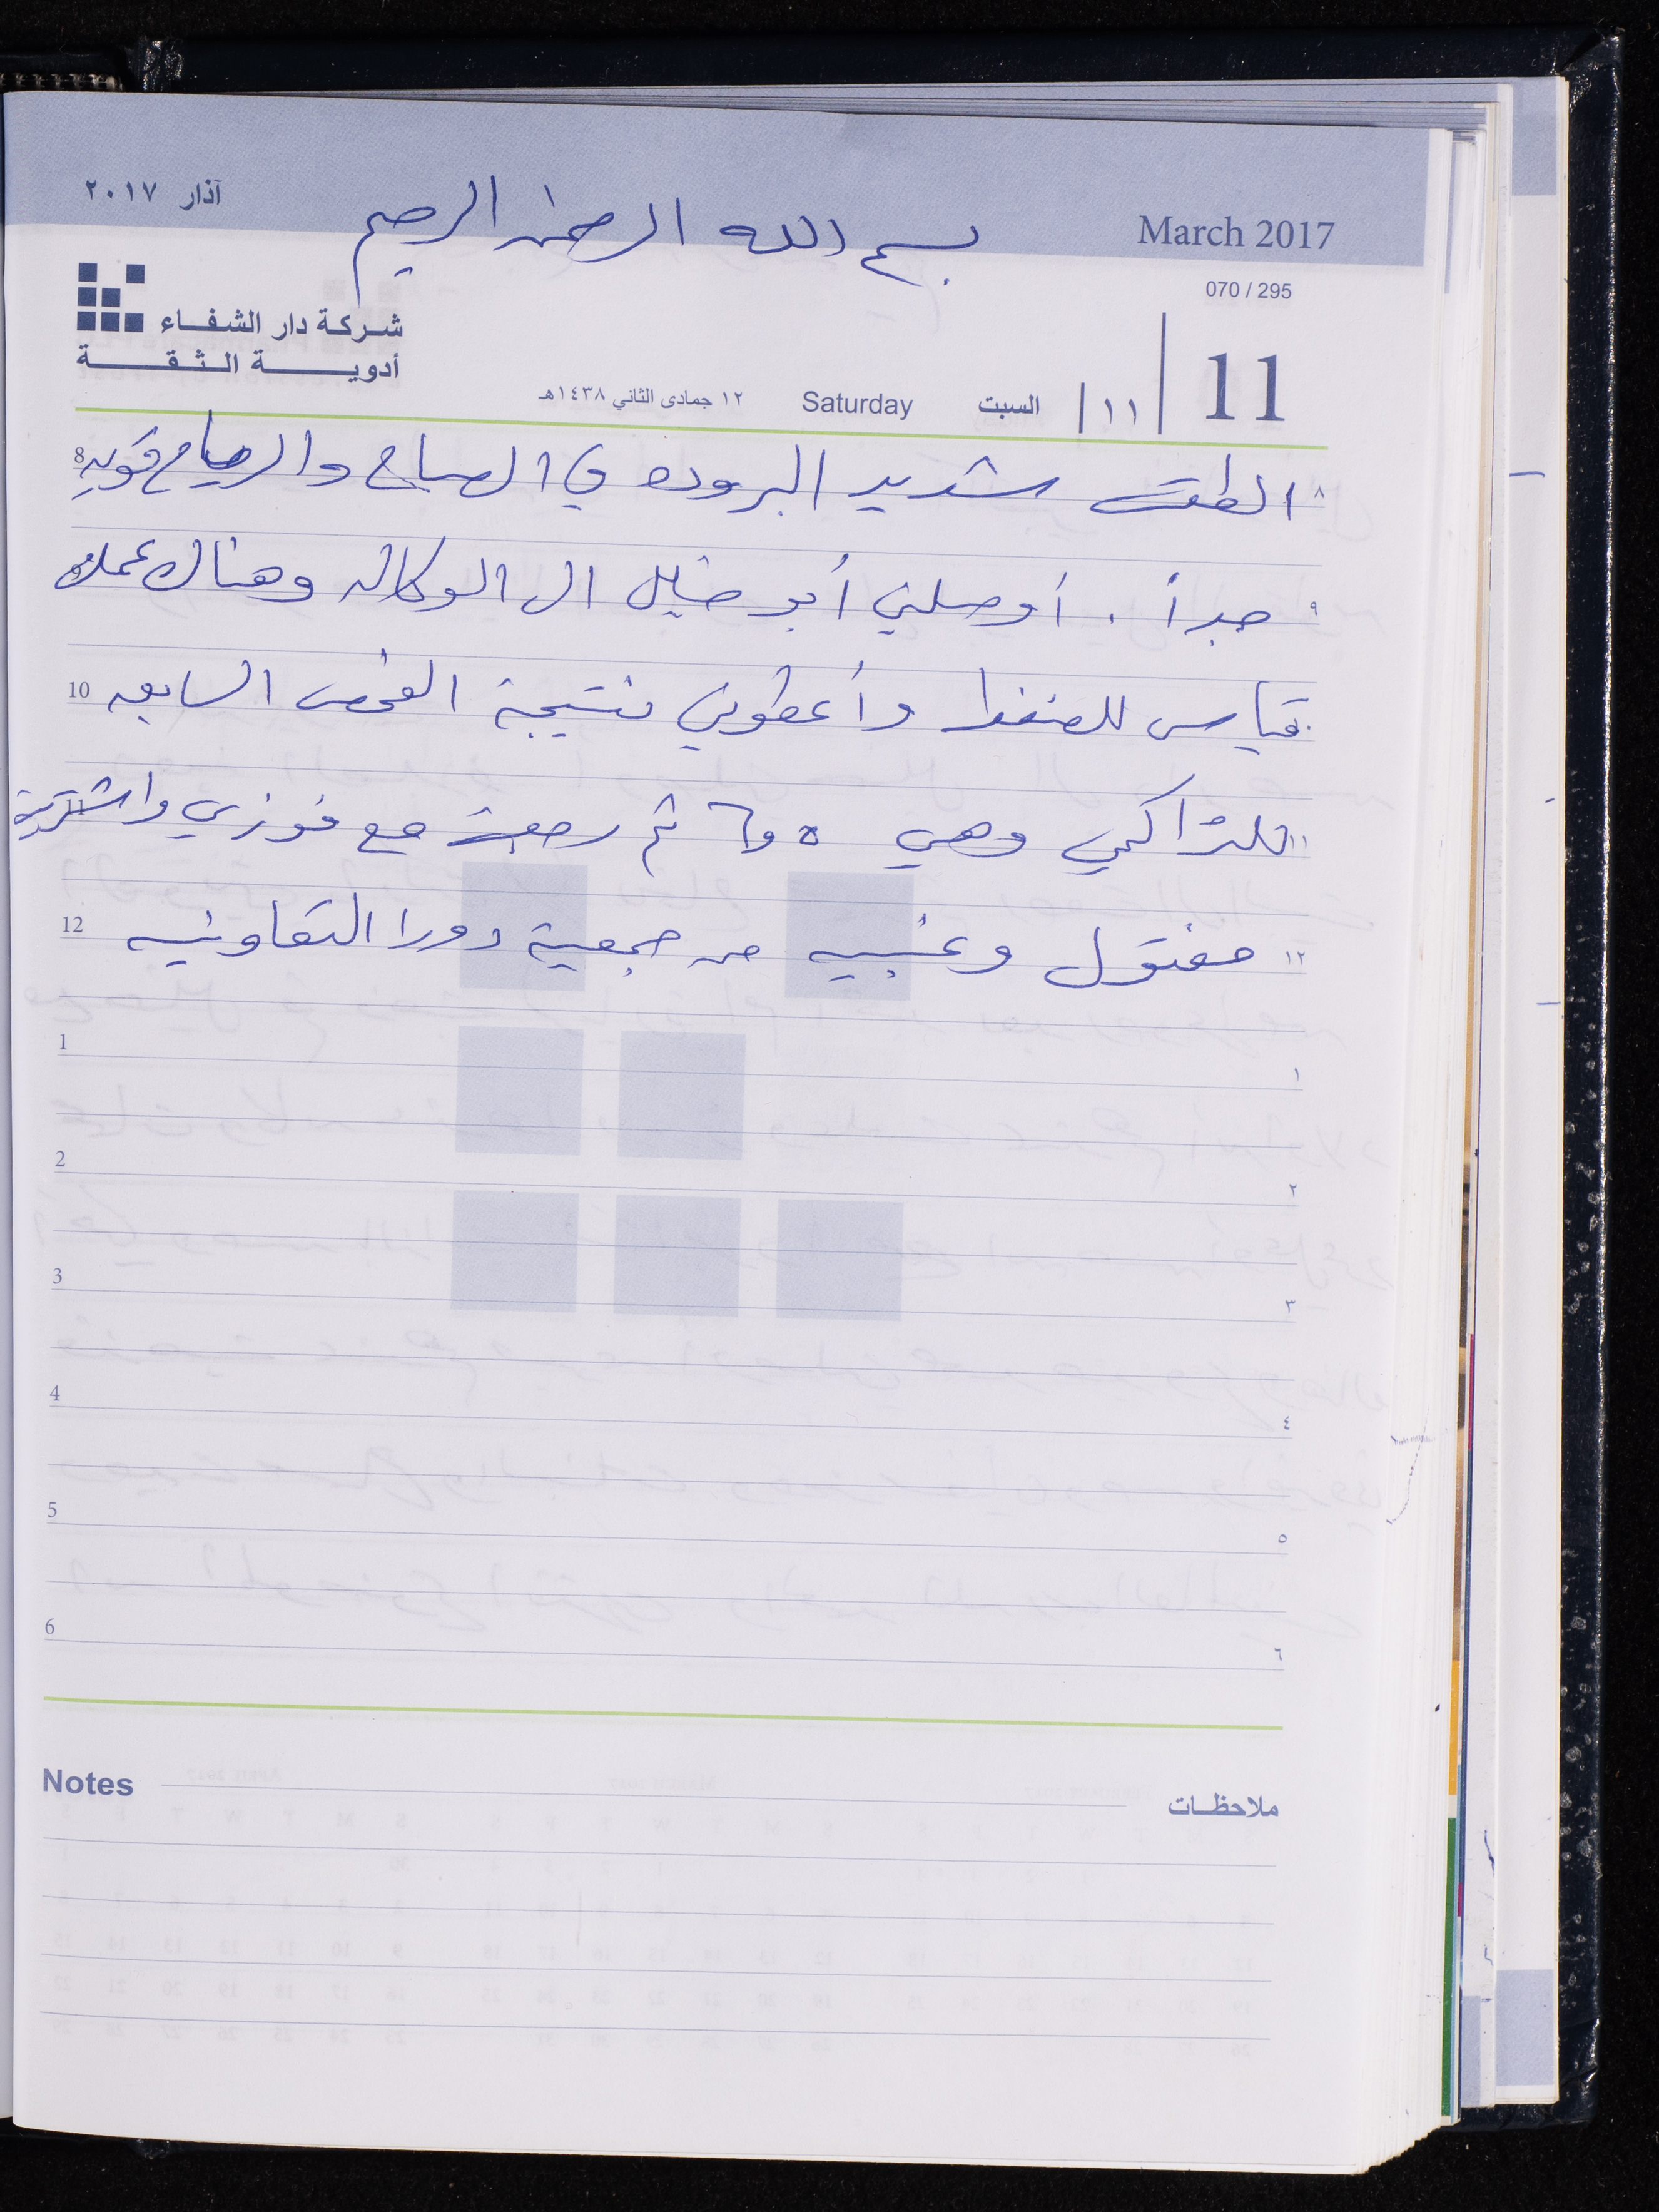 آذار ٢٠١٧
بسم الله الرحمن الرحيم
March 2017
070 / 295
شركة دار الشفاء
أدوية الثقة
11
١١
السبت
Saturday
١٢ جمادى الثاني ١٤٣٨هـ
٨ الطقس شديد البروده في الصباح والرياح قويه 8
٩ جداً . أوصلني أبو خليل الى الوكاله وهناك عملت
قياس للضغط وأعطوني نتيجة الفحص السابعه 10
١١ للتراكمي وهي ٥ و٦ ثم رجعت مع فوزي واشتريت 11
١٢ مفتول وعنبيه من جمعية دورا التعاونيه 12
١ 1
٢ 2
٣ 3
٤ 4
٥ 5
٦ 6
Notes ملاحظات